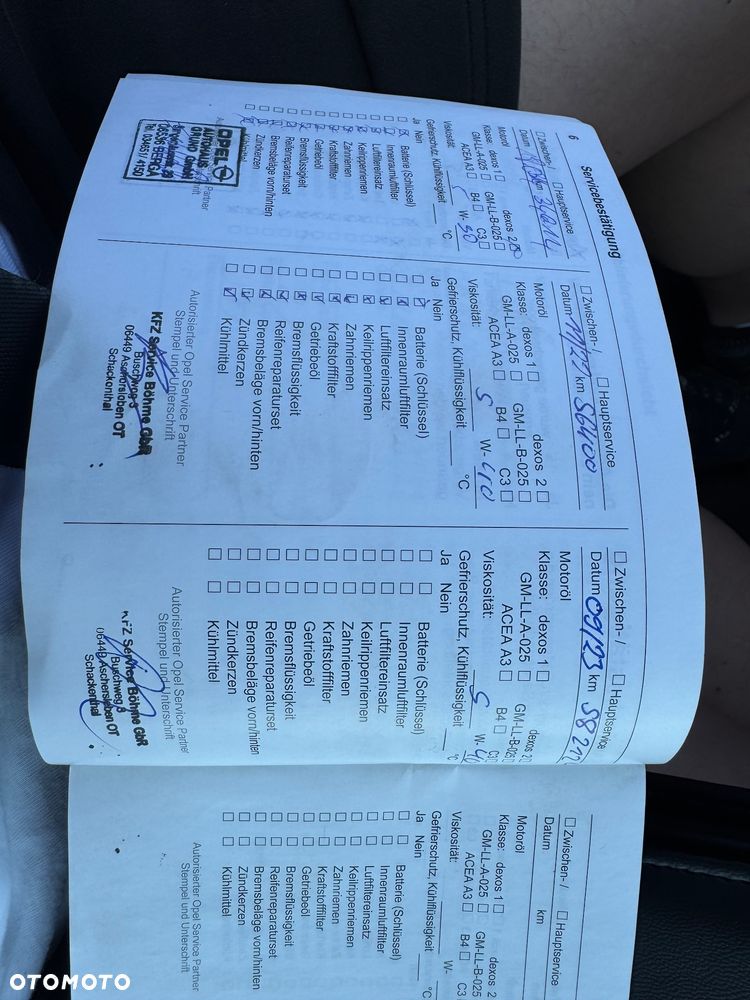 6
Servicebestätigung
☐ Zwischen- / ☐ Hauptservice
Datum km
Motoröl
Klasse: dexos 1 ☐ dexos 2
GM-LL-A-025 ☐ GM-LL-B-025 ☐
ACEA A3 ☐ B4 ☐ C3 ☐
Viskosität: 5 W- 30
Gefrierschutz, Kühlflüssigkeit °C
Ja Nein
Batterie (Schlüssel)
Innenraumluftfilter
Luftfiltereinsatz
Keilrippenriemen
Zahnriemen
Kraftstofffilter
Getriebeöl
Bremsflüssigkeit
Reifenreparaturset
Bremsbeläge vorn/hinten
Zündkerzen
OPEL
AUTOHAUS
GRUND GmbH
☐ Zwischen- / ☐ Hauptservice
Datum 11/21 km 56400
Motoröl
Klasse: dexos 1 ☐ dexos 2 ☐
GM-LL-A-025 ☐ GM-LL-B-025 ☐
ACEA A3 ☐ B4 ☐ C3 ☐
Viskosität: 5 W- 40
Gefrierschutz, Kühlflüssigkeit °C
Ja Nein
Batterie (Schlüssel)
Innenraumluftfilter
Luftfiltereinsatz
Keilrippenriemen
Zahnriemen
Kraftstofffilter
Getriebeöl
Bremsflüssigkeit
Reifenreparaturset
Bremsbeläge vorn/hinten
Zündkerzen
Kühlmittel
Autorisierter Opel Service Partner
Stempel und Unterschrift
KFZ Service Böhme GbR
Buschweg 3
06449 Aschersleben OT
Schackenthal
☐ Zwischen- / ☐ Hauptservice
Datum 09/23 km 58212
Motoröl
Klasse: dexos 1 ☐ dexos 2
GM-LL-A-025 ☐ GM-LL-B-025
ACEA A3 ☐ B4 ☐ C3
Viskosität: 5 W- 40
Gefrierschutz, Kühlflüssigkeit °C
Ja Nein
☐ ☐ Batterie (Schlüssel)
☐ ☐ Innenraumluftfilter
☐ ☐ Luftfiltereinsatz
☐ ☐ Keilrippenriemen
☐ ☐ Zahnriemen
☐ ☐ Kraftstofffilter
☐ ☐ Getriebeöl
☐ ☐ Bremsflüssigkeit
☐ ☐ Reifenreparaturset
☐ ☐ Bremsbeläge vorn/hinten
☐ ☐ Zündkerzen
☐ ☐ Kühlmittel
Autorisierter Opel Service Partner
Stempel und Unterschrift
KFZ Service Böhme GbR
Buschweg 3
06449 Aschersleben OT
Schackenthal
☐ Zwischen- / ☐ Hauptservice
Datum km
Motoröl
Klasse: dexos 1 ☐ dexos 2
GM-LL-A-025 ☐ GM-LL-B-025
ACEA A3 ☐ B4 ☐ C3
Viskosität: W-
Gefrierschutz, Kühlflüssigkeit °C
Ja Nein
☐ ☐ Batterie (Schlüssel)
☐ ☐ Innenraumluftfilter
☐ ☐ Luftfiltereinsatz
☐ ☐ Keilrippenriemen
☐ ☐ Zahnriemen
☐ ☐ Kraftstofffilter
☐ ☐ Getriebeöl
☐ ☐ Bremsflüssigkeit
☐ ☐ Reifenreparaturset
☐ ☐ Bremsbeläge vorn/hinten
☐ ☐ Zündkerzen
☐ ☐ Kühlmittel
Autorisierter Opel Service Partner
Stempel und Unterschrift
OTOMOTO